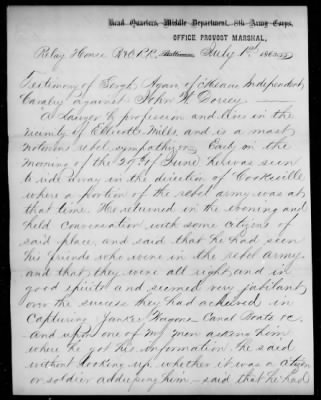 Head. Quarters, Middle Department, 8th Army Corps,
OFFICE PROVOST MARSHAL,
Relay House B&O R.R. Baltimore, July 1st 1863
Testimony of Sergt Agan of Means Independent
Cavalry against John W. Dorsey —
"A Lawyer by profession and lives in the
vicinity of Ellicotts Mills, and is a most
notorious rebel sympathizer. Early on the
morning of the 29th of June he was seen
to ride away in the direction of Cooksville
where a portion of the rebel army was at
that time. He returned in the evening and
held conversation with some citizens of
said place, and said that he had seen
his friends who were in the rebel army
and that they were all right, and in
good spirits and seemed very jubilant
over the success they had achieved in
Capturing Yankee Wagons Canal Boats &c.
— and upon one of my men asking him
where he got his information, he said
without looking up, whether it was a citizen
or soldier addressing him — said that he had